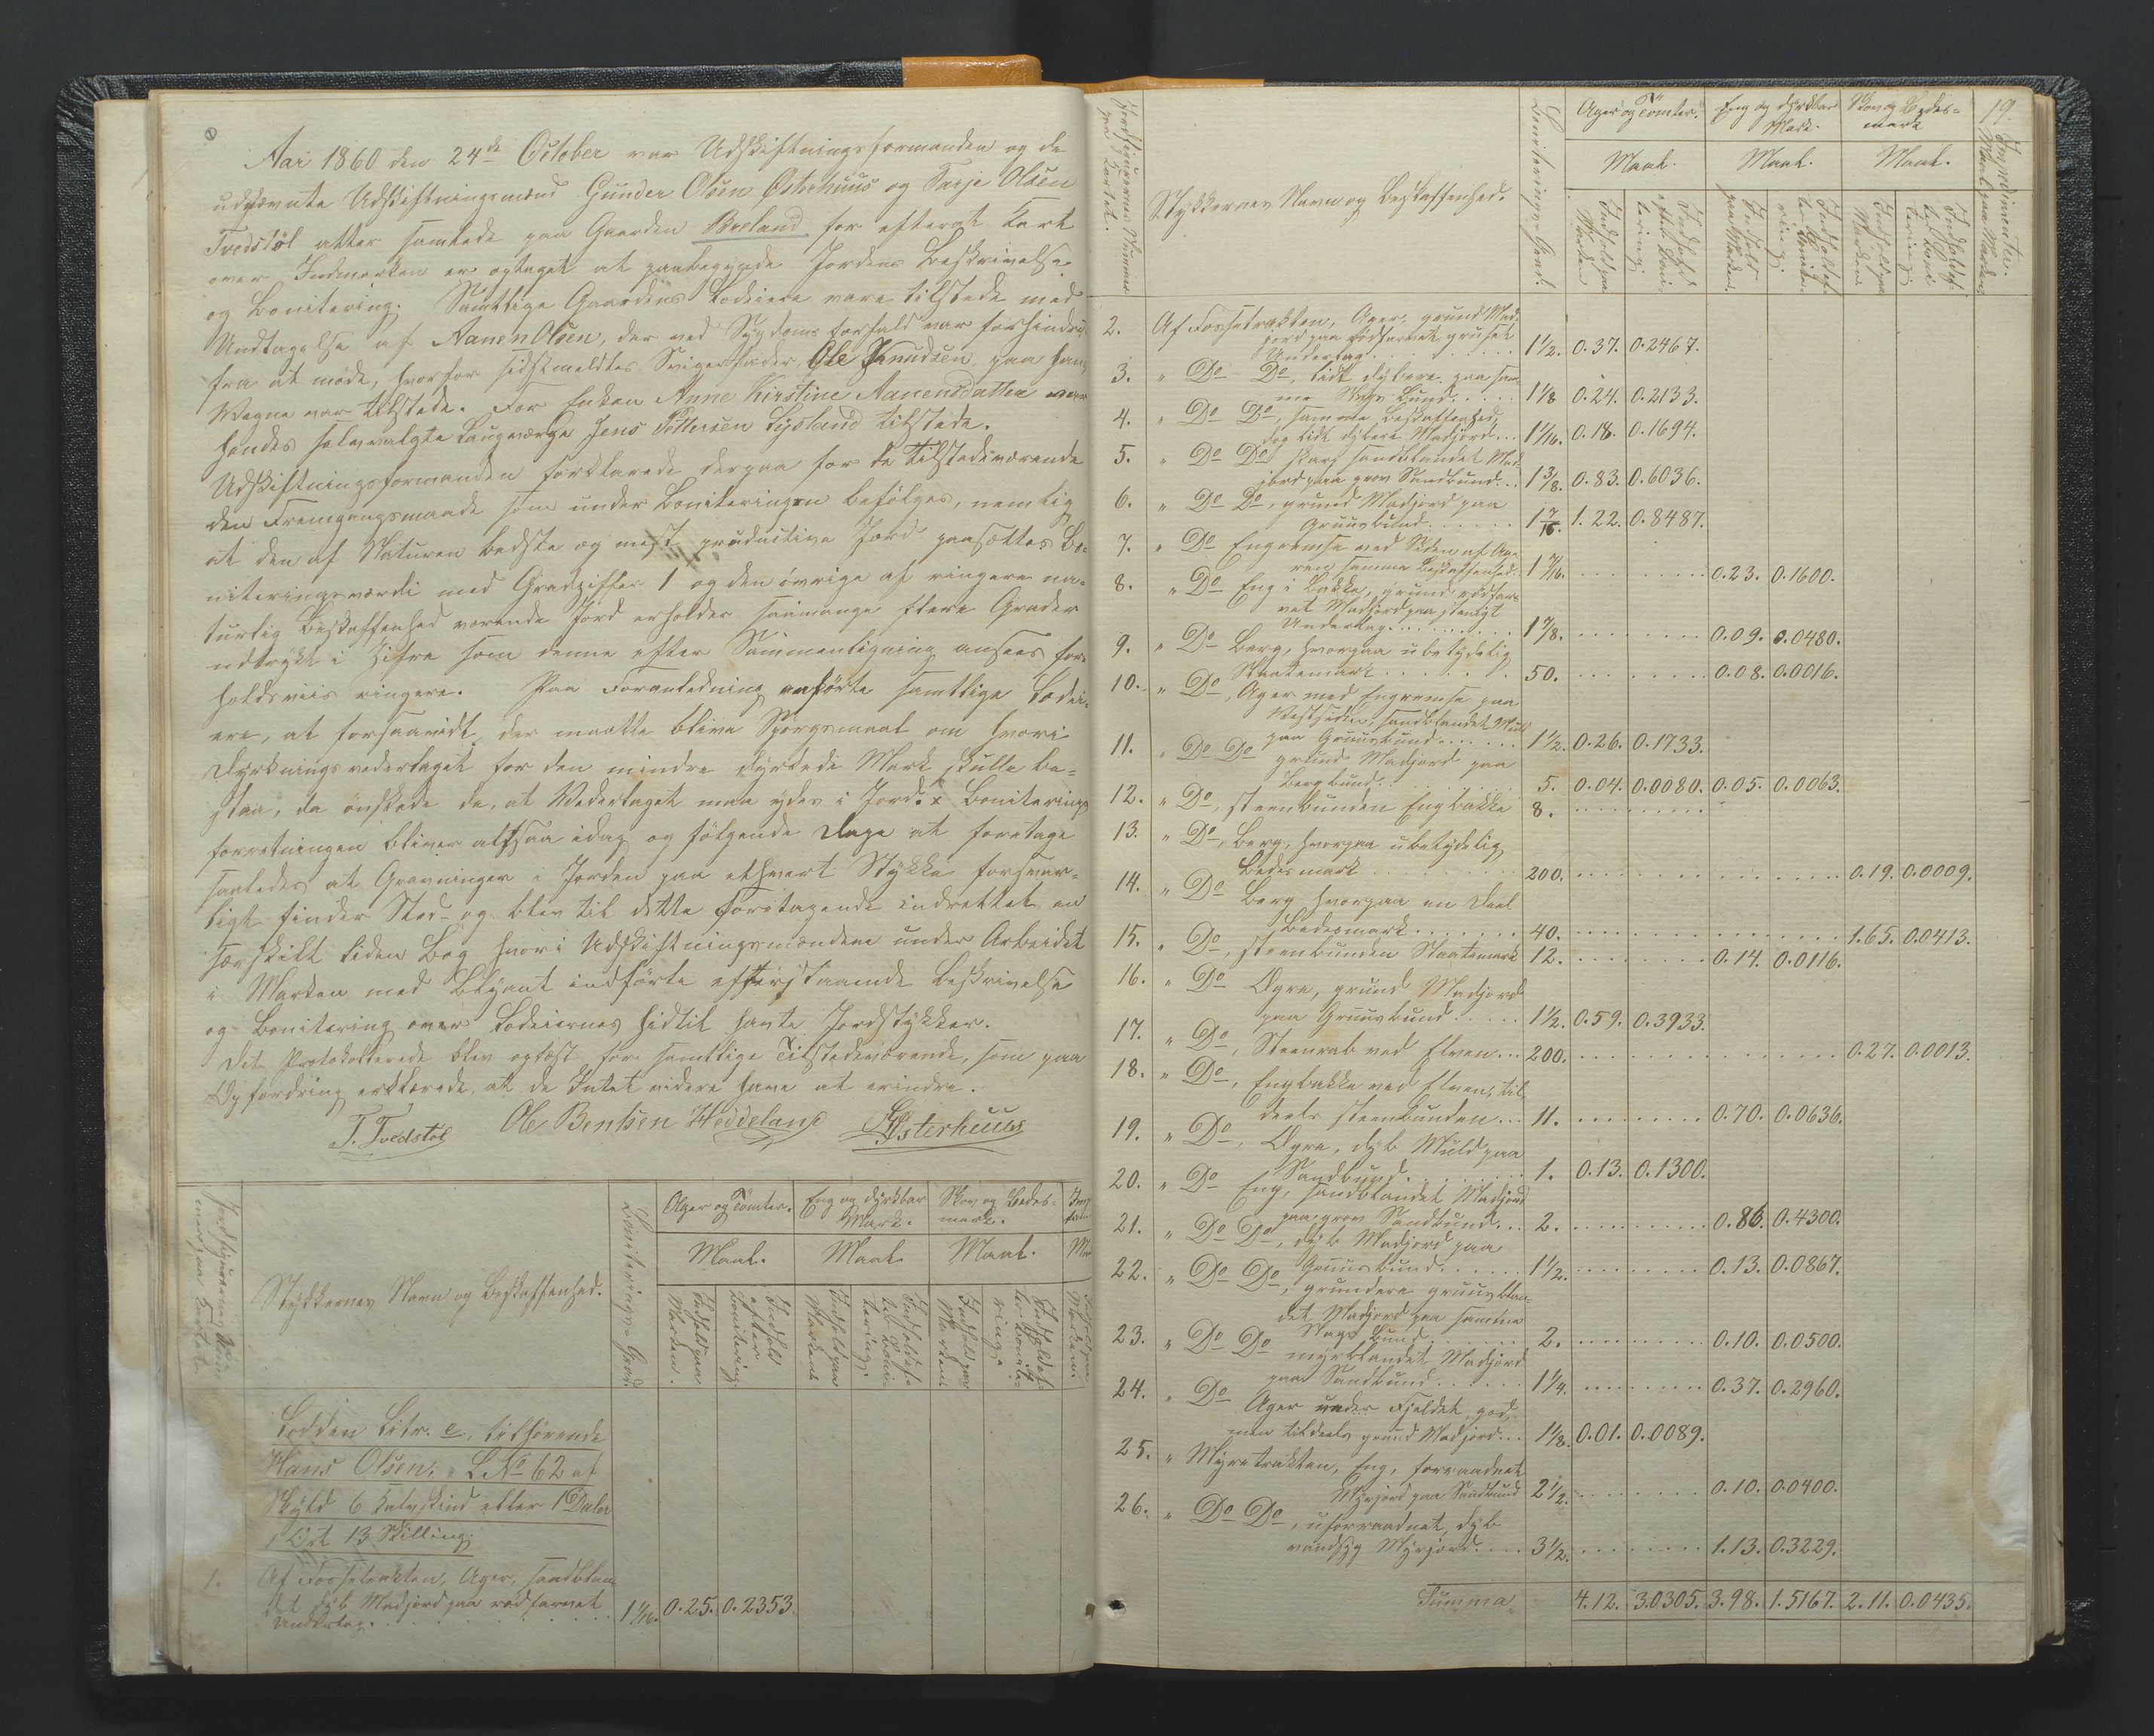 Aar 1860 den 24de October var Udskiftningsformanden og de
udnævnte Udskiftningsmænd Gunder Olsen Østerhuus og Tarje Olsen
Tvedstøl atter samlede paa Gaarden Breland for efterat Kart
over Indmarken er optaget at paabegynde Jordens Beskrivelse
og Bonitering. Samtlige Gaardens Lodeiere vare tilstede med
Undtagelse af Aanen Olsen, der ved Sygdoms forfald var forhindret
fra at møde, hvorfor sidstmeldtes Svigerfader Ole Knudsen paa hans
Vegne var tilstede. For Enken Anne Kirstine Aanensdatter var
hendes selvvalgte Laugværge Jens Pettersen Lysland tilstede.
Udskiftningsformanden forklarede derpaa for de tilstedeværende
den Fremgangsmaade som under Boniteringen befølges, nemlig
at den af Naturen bedste og mest productive Jord paasættes Bo-
niteringsværdi med Gradziffer 1 og den övrige af ringere na-
turlig Beskaffenhed værende Jord erholder saamange flere Grader
udtrykt i Zifre som denne efter Sammenligning ansees for-
holdsviis ringere. Paa Foranledning anförte samtlige Lodei-
ere, at forsaavidt der maatte blive Spörgsmaal om hvori
Dyrkningsvederlaget for den mindre dyrkede Mark skulle be-
staa, da önskede de, at Vederlaget maa ydes i Jord. x Boniterings
forretningen bliver altsaa idag og fölgende Dage at foretage
saaledes at Gravninger i Jorden paa ethvert Stykke forsvar-
ligt finder Sted og blev til dette Foretagende indrettet en
særskilt liden Bog hvori Udskiftningsmændene under Arbeidet
i Marken med Blyant indförte efterstaaende Beskrivelse
og Bonitering over Lodeiernes hidtil havte Jordstykker.
Det Protokollerede blev oplæst for samtlige Tilstedeværende, som paa
Opfordring erklærede, at de Intet videre have at erindre.
T. Tvedstøl Ole Bentsen Heddeland GOsterhuus
Stykkernes Navn og Beskaffenhed. Boniterings-Grad. Ager og Tomter. Eng og dyrkbar Mark. Skov og Bedes-mark.
Maal. Maal. Maal.
Lodden Litr. e, tilhörende
Hans Olsen, L.No 62 af
Skyld 6 Kalvskind eller 1 Daler
1 Ort 13 Skilling.
1. Af Fossetrakten, Ager, sandblan-
det dyb Madjord paa rödfarvet
Underlag. 1 1/16. 0.25. 0.2353
19.
Jordfigurernes Numer paa Kartet. Stykkernes Navn og Beskaffenhed. Boniterings-Grad. Ager og Tomter. Eng og dyrkbar Mark. Skov og Bedes-mark
Maal. Maal. Maal.
2. Af Fossetrakten, Ager, grund Mad-
jord paa rödfarvet gruset
Underlag 1 1/2. 0.37. 0.2467.
3. " Do Do, lidt dybere paa sam-
me Slags Bund 1 1/8 0.24. 0.2133.
4. " Do Do, samme Beskaffenhed,
dog lidt dybere Madjord 1 1/16. 0.18. 0.1694.
5. " Do Do skarp sandblandet Mad-
jord paa grov Sandbund 1 3/8. 0.83. 0.6036.
6. " Do Do, grund Madjord paa
Gruusbund 1 7/16. 1.22. 0.8487.
7. " Do Engremse ved Siden af Age-
ren samme Beskaffenhed 1 7/16. 0.23. 0.1600.
8. " Do Eng i Bakke, grund rödfar-
vet Madjord paa stenigt
Underlag 1 7/8. 0.09. 0.0480.
9. " Do Berg, hvorpaa ubetydelig
Slaattemark 50. 0.08. 0.0016.
10. " Do, Ager med Engremse paa
Vestsiden, sandblandet Muld
paa Gruusbund 1 1/2. 0.26. 0.1733.
11. " Do Do grund Madjord paa
Bergbund 5. 0.04. 0.0080. 0.05. 0.0063.
12. " Do, steenbunden Engbakke 8.
13. " Do, Berg, hvorpaa ubetydelig
Bedesmark 200. 0.19. 0.0009.
14. " Do Berg hvorpaa en Deel
Bedesmark 40. 1.65. 0.0413.
15. " Do, steenbunden Slaattemark 12. 0.14. 0.0116.
16. " Do Agre, grund Madjord
paa Gruusbund 1 1/2. 0.59. 0.3933.
17. " Do, Steenrab ved Elven 200. 0.27. 0.0013.
18. " Do, Engbakke ved Elven, til-
deels steenbunden 11. 0.70. 0.0636.
19. " Do, Agre, dyb Muld paa
Sandbund 1. 0.13. 0.1300.
20. " Do Eng, sandblandet Madjord
paa grov Sandbund 2. 0.86. 0.4300.
21. " Do Do, dyb Madjord paa
Gruusbund 1 1/2. 0.13. 0.0867.
22. " Do Do, grundere gruusblan-
det Madjord paa samme
Slags Bund 2. 0.10. 0.0500.
23. " Do Do myrblandet Madjord
paa Sandbund 1 1/4. 0.37. 0.2960.
24. " Do Ager under Fjeldet, god,
men tildeels grund Madjord 1 1/8. 0.01. 0.0089.
25. " Myretrakten, Eng, forraadnet
Myrjord paa Sandbund 2 1/2. 0.10. 0.0400.
26. " Do Do, uforraadnet dyb
vandsyg Myrjord 3 1/2. 1.13. 0.3229.
Summa 4.12. 3.0305. 3.98. 1.5167. 2.11. 0.0435.